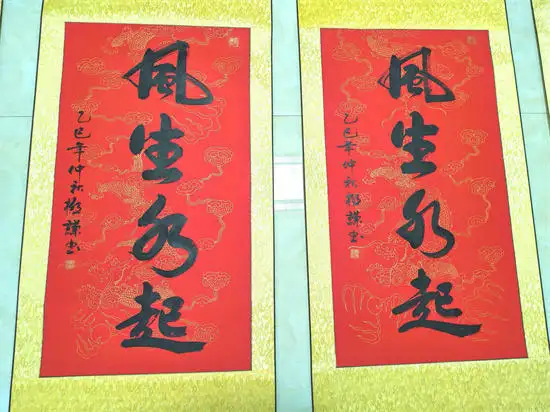 風生水起
乙巳年仲秋 謙書
風生水起
乙巳年仲秋 謙書